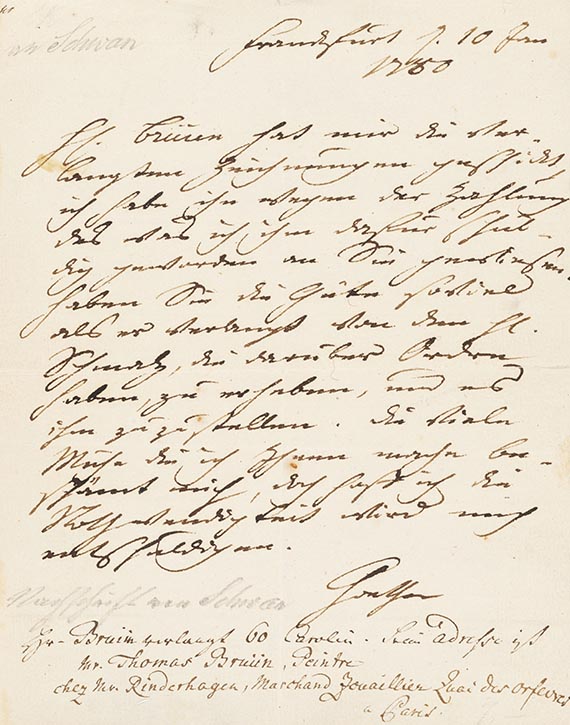 an Schwan
Frankfurt d. 10 Jan
1780
H. Bruun hat mir die ver-
langten Zeichnungen geschickt,
ich habe ihn wegen der Zahlung
des was ich ihm dafür schul-
dig geworden an Sie gewiesen.
haben Sie die Güte soviel
als er verlangt von den H.
Schmalz, die darüber Ordre
haben, zu erheben, und es
ihm zuzustellen. die viele
Mühe die ich Ihnen mache be-
schämt mich, doch hoff ich die
Nothwendigkeit wird mich
entschuldigen.
Goethe
Nachschrift von Schwan
Hr. Bruün verlangt 60 Carolin. Seine adresse ist
Mr. Thomas Bruün, Peintre
chez Mr. Rinderhagen, Marchand Jouaillier Quai des orfevres
a Paris.